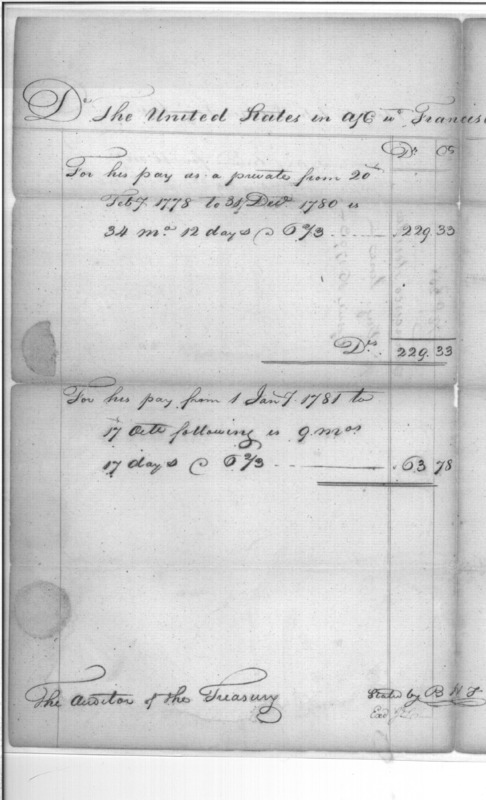 Dr. The United States in a/c wt. Francis
Drs 05
For his pay as a private from 20th
Feby. 1778 to 31st Decr. 1780 is
34 mos. 12 days @ 6 2/3 229 33
Drs 229. 33
For his pay from 1 Jany. 1781 to
17 Octr following is 9 mos
17 days @ 6 2/3 63 78
The Auditor of the Treasury
Stated by B H T
Exd